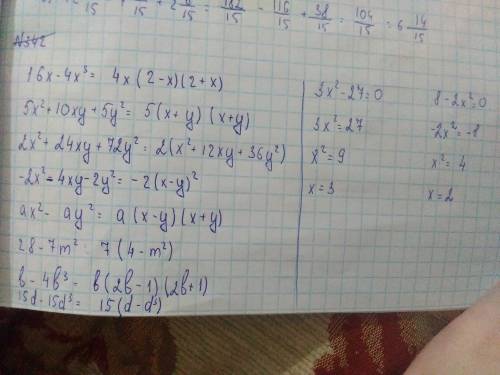 15 15 + 2 6/15 = 182/15 - 116/15 + 38/15 = 104/15 = 6 14/15
№342
16x-4x³= 4x(2-x)(2+x)
5x²+10xy+5y²= 5(x+y)(x+y)
2x²+24xy+72y²= 2(x²+12xy+36y²)
-2x²-4xy-2y²= -2(x-y)²
ax²- ay²= a(x-y)(x+y)
28-7m² 7(4-m²)
b-4b³= b(2b-1)(2b+1)
15d-15d³= 15(d-d³)
3x²-27=0
3x²=27
x²=9
x=3
8-2x²=0
-2x²=-8
x²=4
x=2